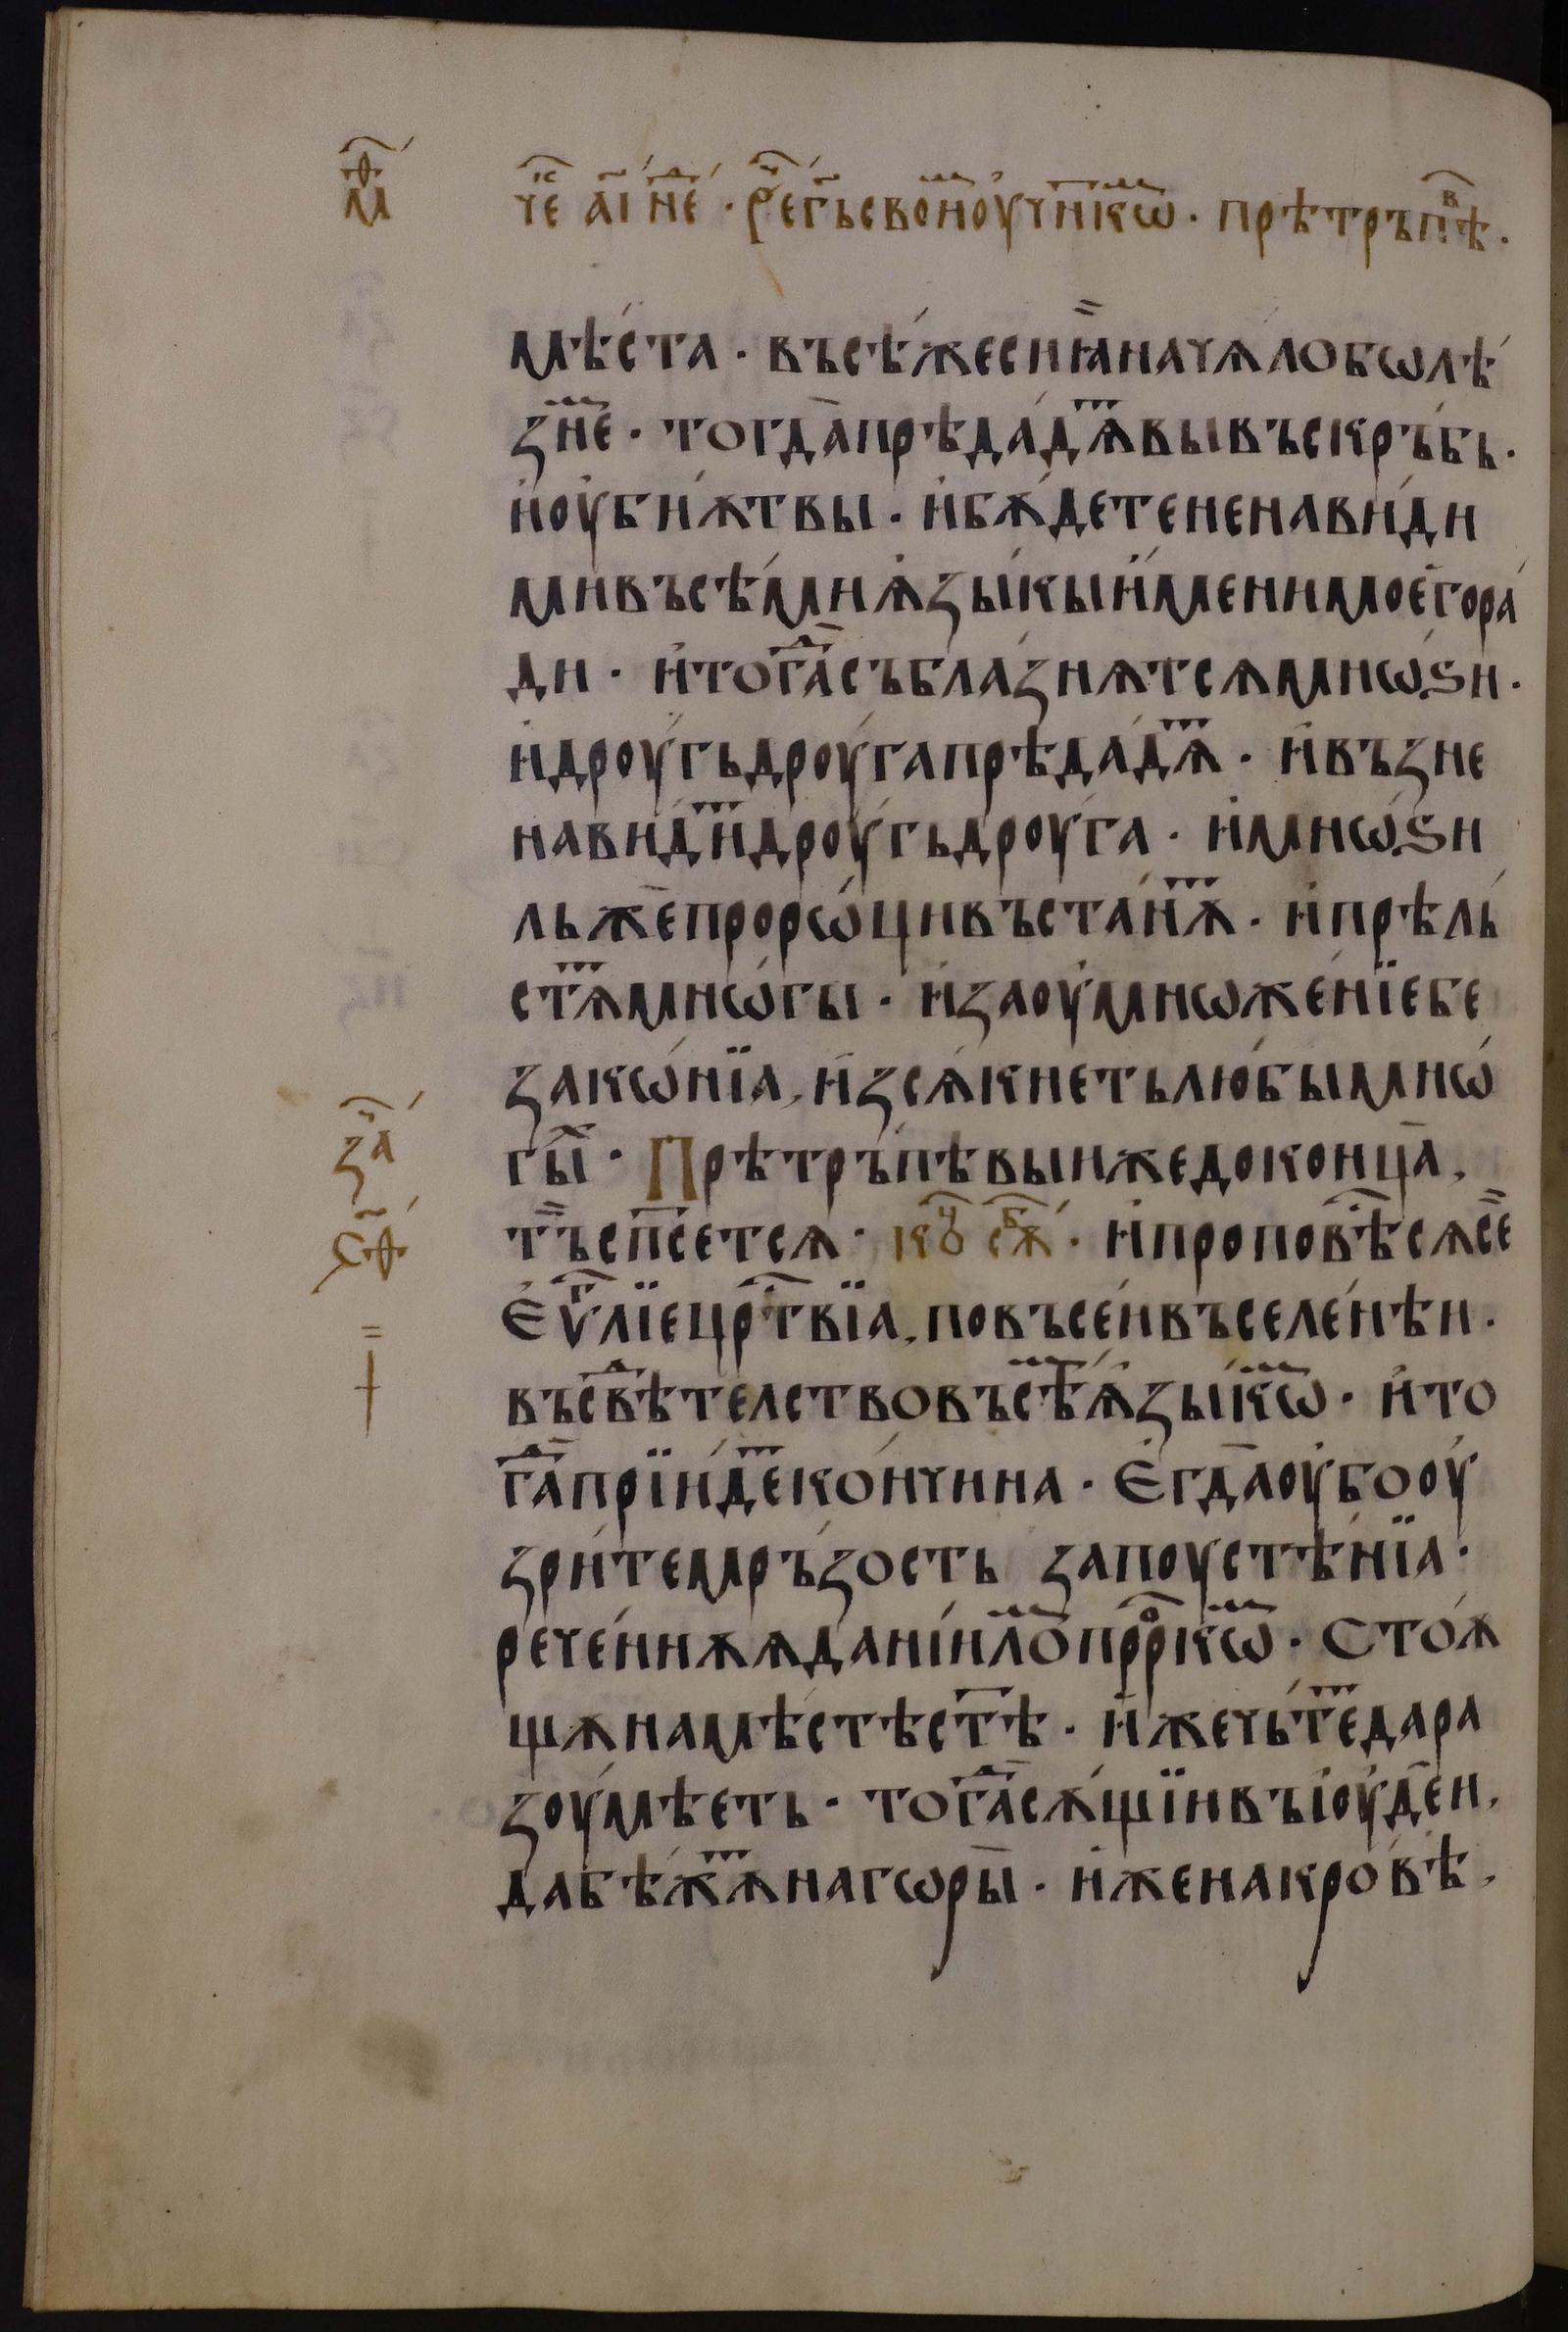 м҃ѳ
че҃ аі҃ не҃ · рⷱ҇е гь҃ своиⷨ оучн҃кѡⷨ · прѣтръпѣⷡ ·
мѣ́ста · въсѣ́жесиꙗ҅начѧ́лобѡлѣ́
знеⷨ҇ · тогда̀прѣдадѧ́ⷮвывъскръ́бь ·
и҆оу҆биѫтвы · и҆бѫ́детененави́ди
мивъсѣ́миѫ҆зы́кыи҆́менимоего̀ра́
ди · и҆тогаⷣ҇съблазнѧ́тсѧмнѡ́ѕи ·
и҆дроу́гьдроу́гапрѣдадѧ́ⷮ · и҆възне
нави́диⷮдроу́гьдроу́га · и҆мнѡ́ѕи
льжѐпрорѡ́цивъста́нѫⷮ · и҆прѣль́
стѧⷮмнѡ́гы · и҆заоу҆мнѡже́нїебе
закѡ́нїа, и҆зсѧ́кнетьлюбы̀мнѡ́
гыⷯ · Прѣтръпѣ́выижедоконца̀,
тъсп҃сетсѧ · коⷰ҇ сѫⷠ҇ · и҆проповѣⷭ҇сѧсѐ
Еѵⷢ҇лїецрⷭ҇твїа, повъсе́ивъселе́нѣи ·
въсвѣⷣтелствовъсѣⷨѫ҆зы́кѡⷨ · и҆то
гаⷣ҇прїи́деⷮконъчина · Егда̀оу҆бооу҆
зри́темръ́зость запоустѣ́нїа ·
рече́ннѫѧданїи́лоⷨпрⷪ҇ркѡⷨ · Стоѫ́
щѫнамѣ́стѣст҃ѣ · и҆́жечьте́ⷮдара
зоумѣ́еть · тогаⷣ҇сѫ́щїивъі҆оу҆де́и,
дабѣжѫ́ⷮнагѡры̀ · и҆́женакро́вѣ,
заⷱ҇
ч҃ѳ